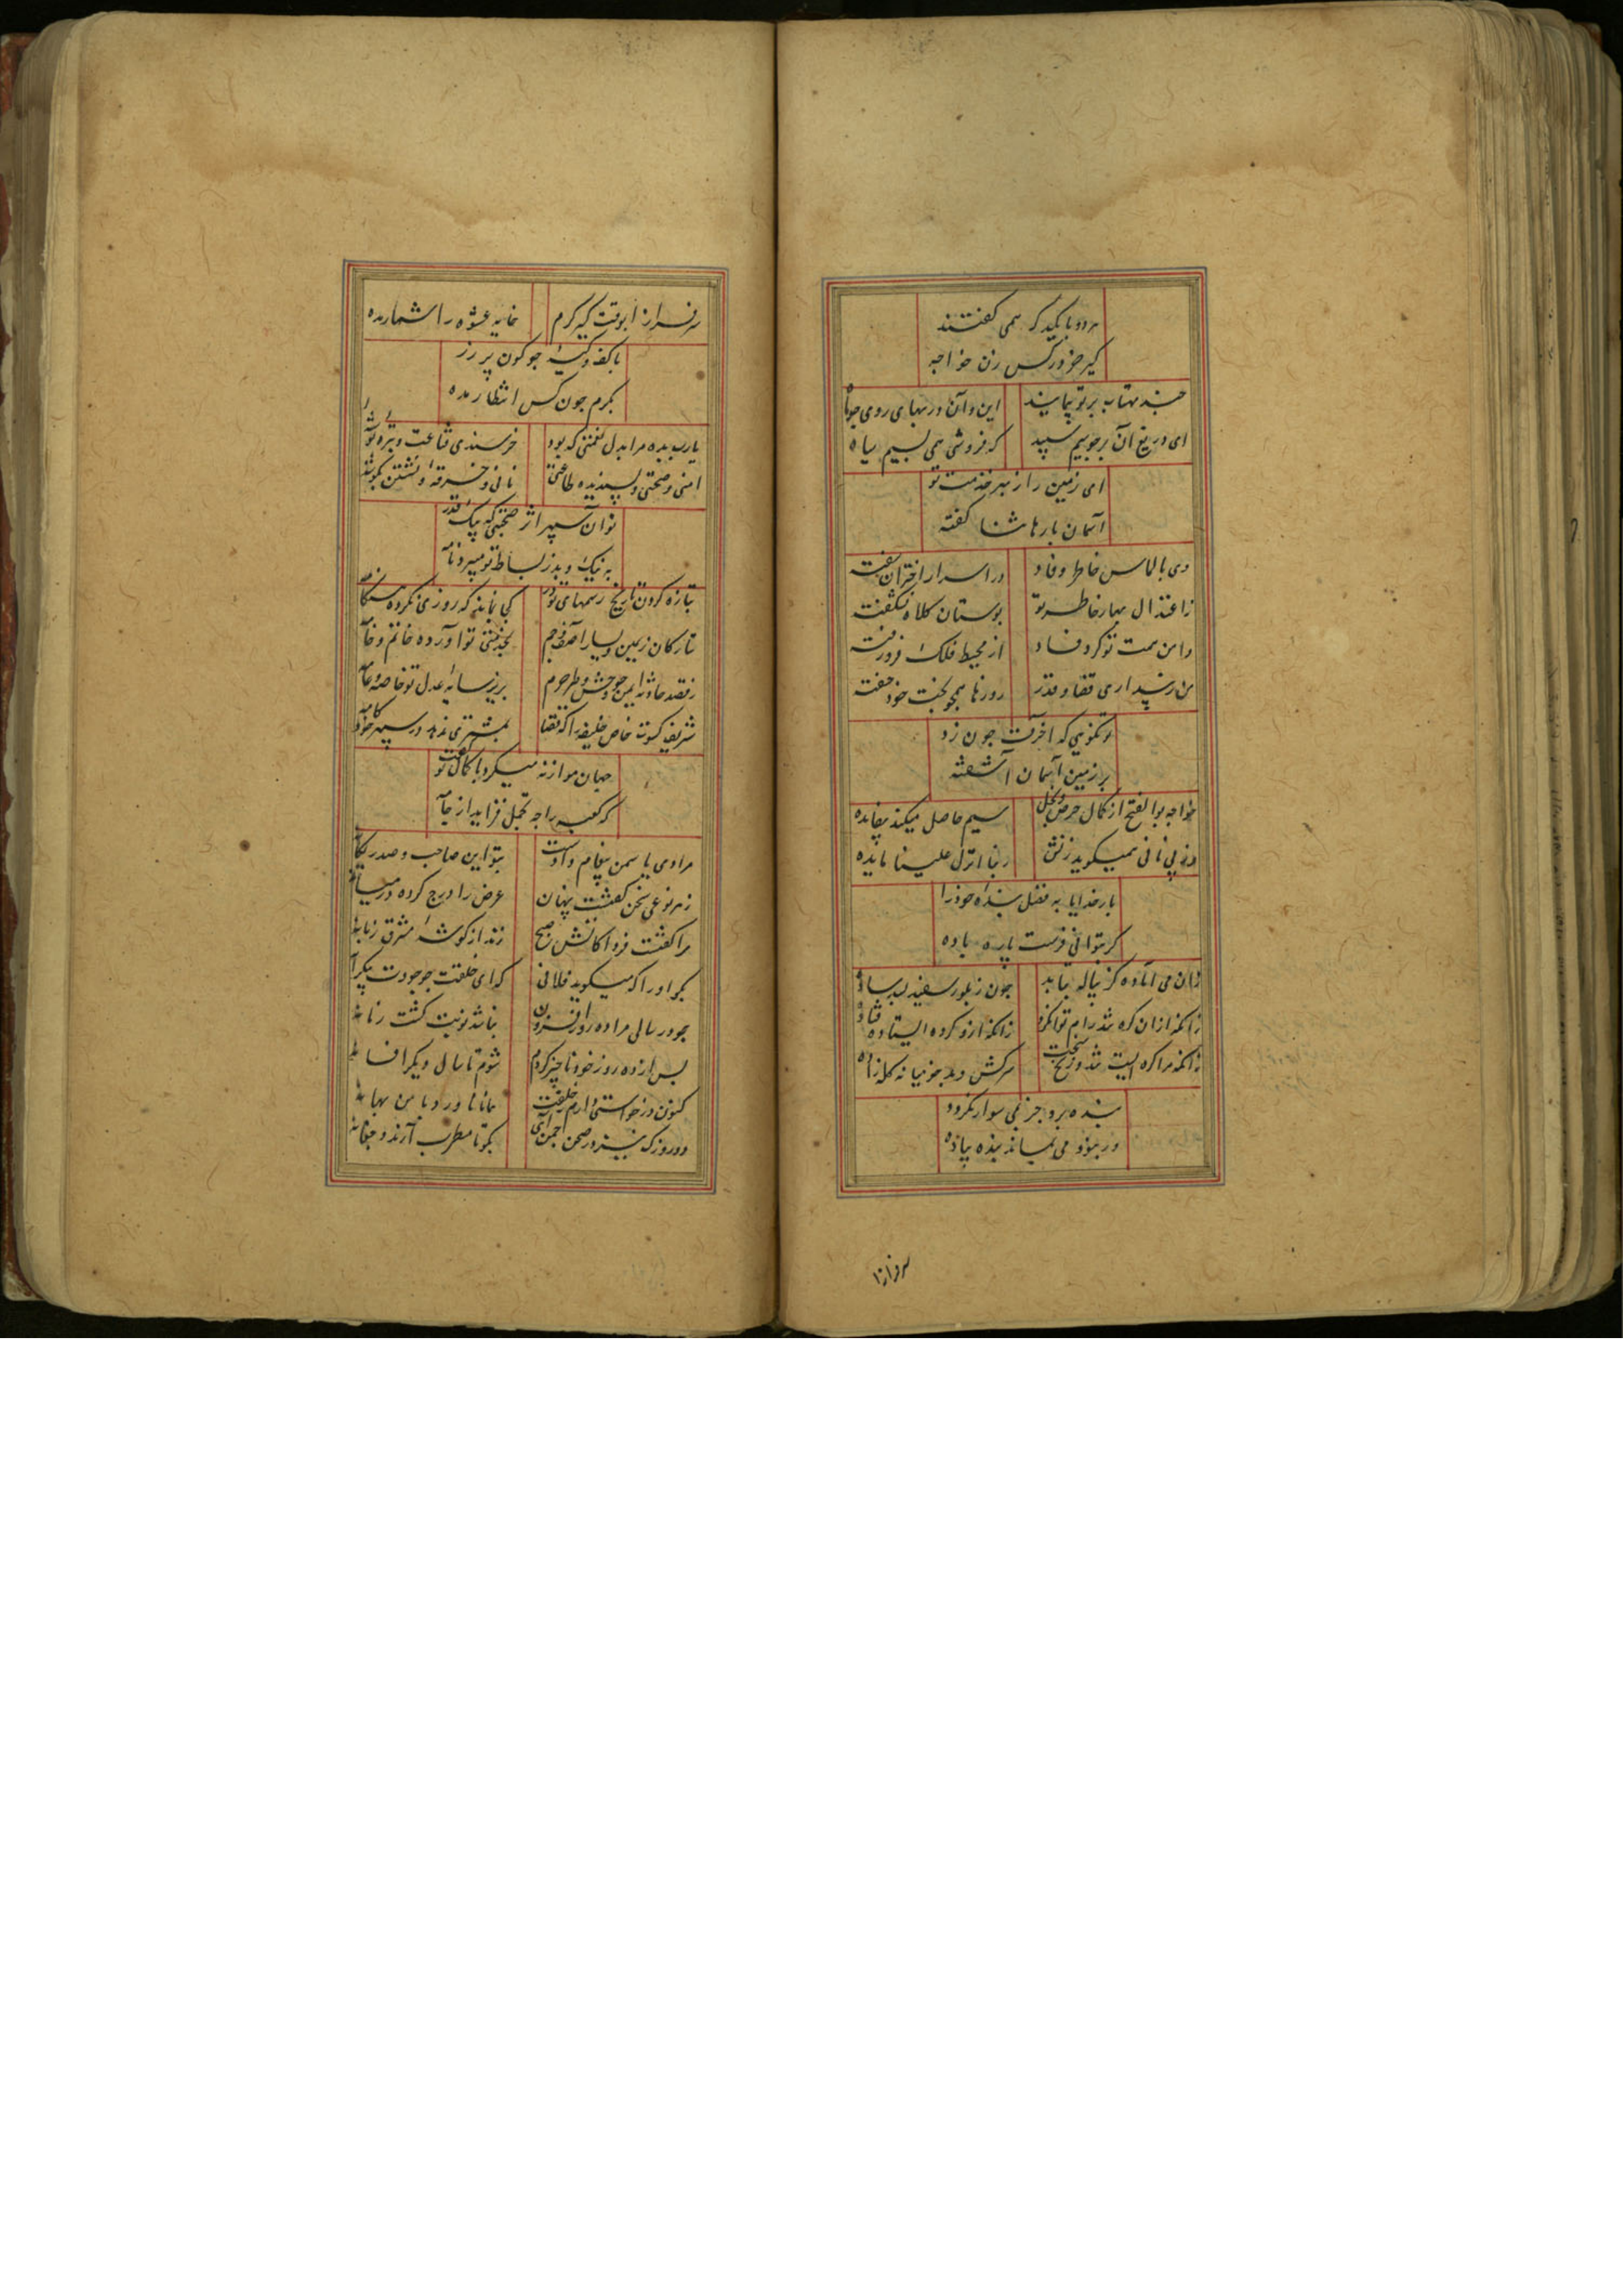 هر دو با یکدگر همی گفتند
کیر خر در کس زن خواجه
چند مهتاب بر تو پیمایند این و آن در بهای روی چو ماه
ای دریغ آن بر چو سیم سپید که فروشی همی بسیم سیاه
ای زمین را ز بهر خدمت تو
آسمان بارها ثنا گفته
وی بالماس خاطر وقاد در اسرار اختران سفته
ز اعتدال بهار خاطر تو بوستان کلاه بشکفته
از محیط فلک فرو رفته
روزها همچو بخت خود خفته
تو نکویی که آخرت چون زد
بر زمین آسمان آشفته
خواجه بوالفتح از کمال حرص و بخل سیم حاصل میکند بیفایده
وز پی نانی همیگوید زنش ربنا انزل علینا مایده
بار خدایا به فضل بنده خود را
گر بتوانی فرست پاره باده
زان می آماده کز پیاله بتابد چون ز بلور سفید بسد ساده
زانکه ازو کرده ایستاده فتاده
سرکش و بد جز میانه کله زاده
بنده برو جز نمی سوار نگردد
ور نبود می بماند بنده پیاده
سرفراز
سرفراز ابوقت کیر کرم خایه عشوه را شمار مده
با کف و کیسه چو کون پر زر
بکرم چون کس انتظار مده
یارب بده مرا بدل نعمتی که بود خرسندی قناعت و
امنی و صحتی و پسندیده طاعتی نانی و خرقه و نشستن بگوشه
تو آن سپهر اثر صحبتی که پیک قدر
به نیک و بد ز بساط تو میبرد نامه
بتازه کردن تاریخ رسمهای تو در کی نماند که روزی نکرده هنگامه
تبارکان زیمین و یسار آصف و جم بجفتی تو آورده خاتم و خامه
ز قصد حادثه ایمن چو وحش و طیر حرم بزیر سایه عدل تو خاصه و عامه
شریف کسوت خاص خلیفه را که قضا بمشتری ندهد در سپهر خودکامه
جهان موازنه میکرد با کمالت گفت
که کعبه را چه تجمل فزاید از جامه
مرا دی یاسمن پیغام دادست بتو این صاحب و صدر یگانه
ز هر نوعی سخن گفتست پنهان غرض را درج کرده در میانه
مرا گفتست فردا کاتش صبح زند از گوشه مشرق زبانه
بگو او را که میگوید فلانی که ای خلقت چو جودت بیکرانه
چو در سالی مرا ده روز افزون نباشد نوبت گشت زمانه
پس از ده روز خود ناچیز گردم شوم تا سال دیگر افسانه
کنون درخواستی دارم ز خلقت
دو روزک نیز در صحن چمن آی بگو تا مطرب آرند و چغانه